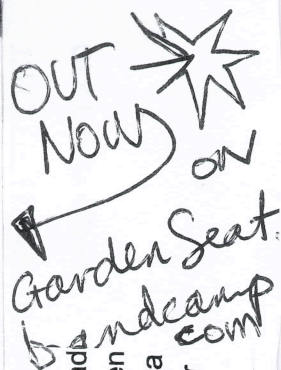 OUT
NOW
ON
Garden Seat.
bandcamp
com
nd
en
a